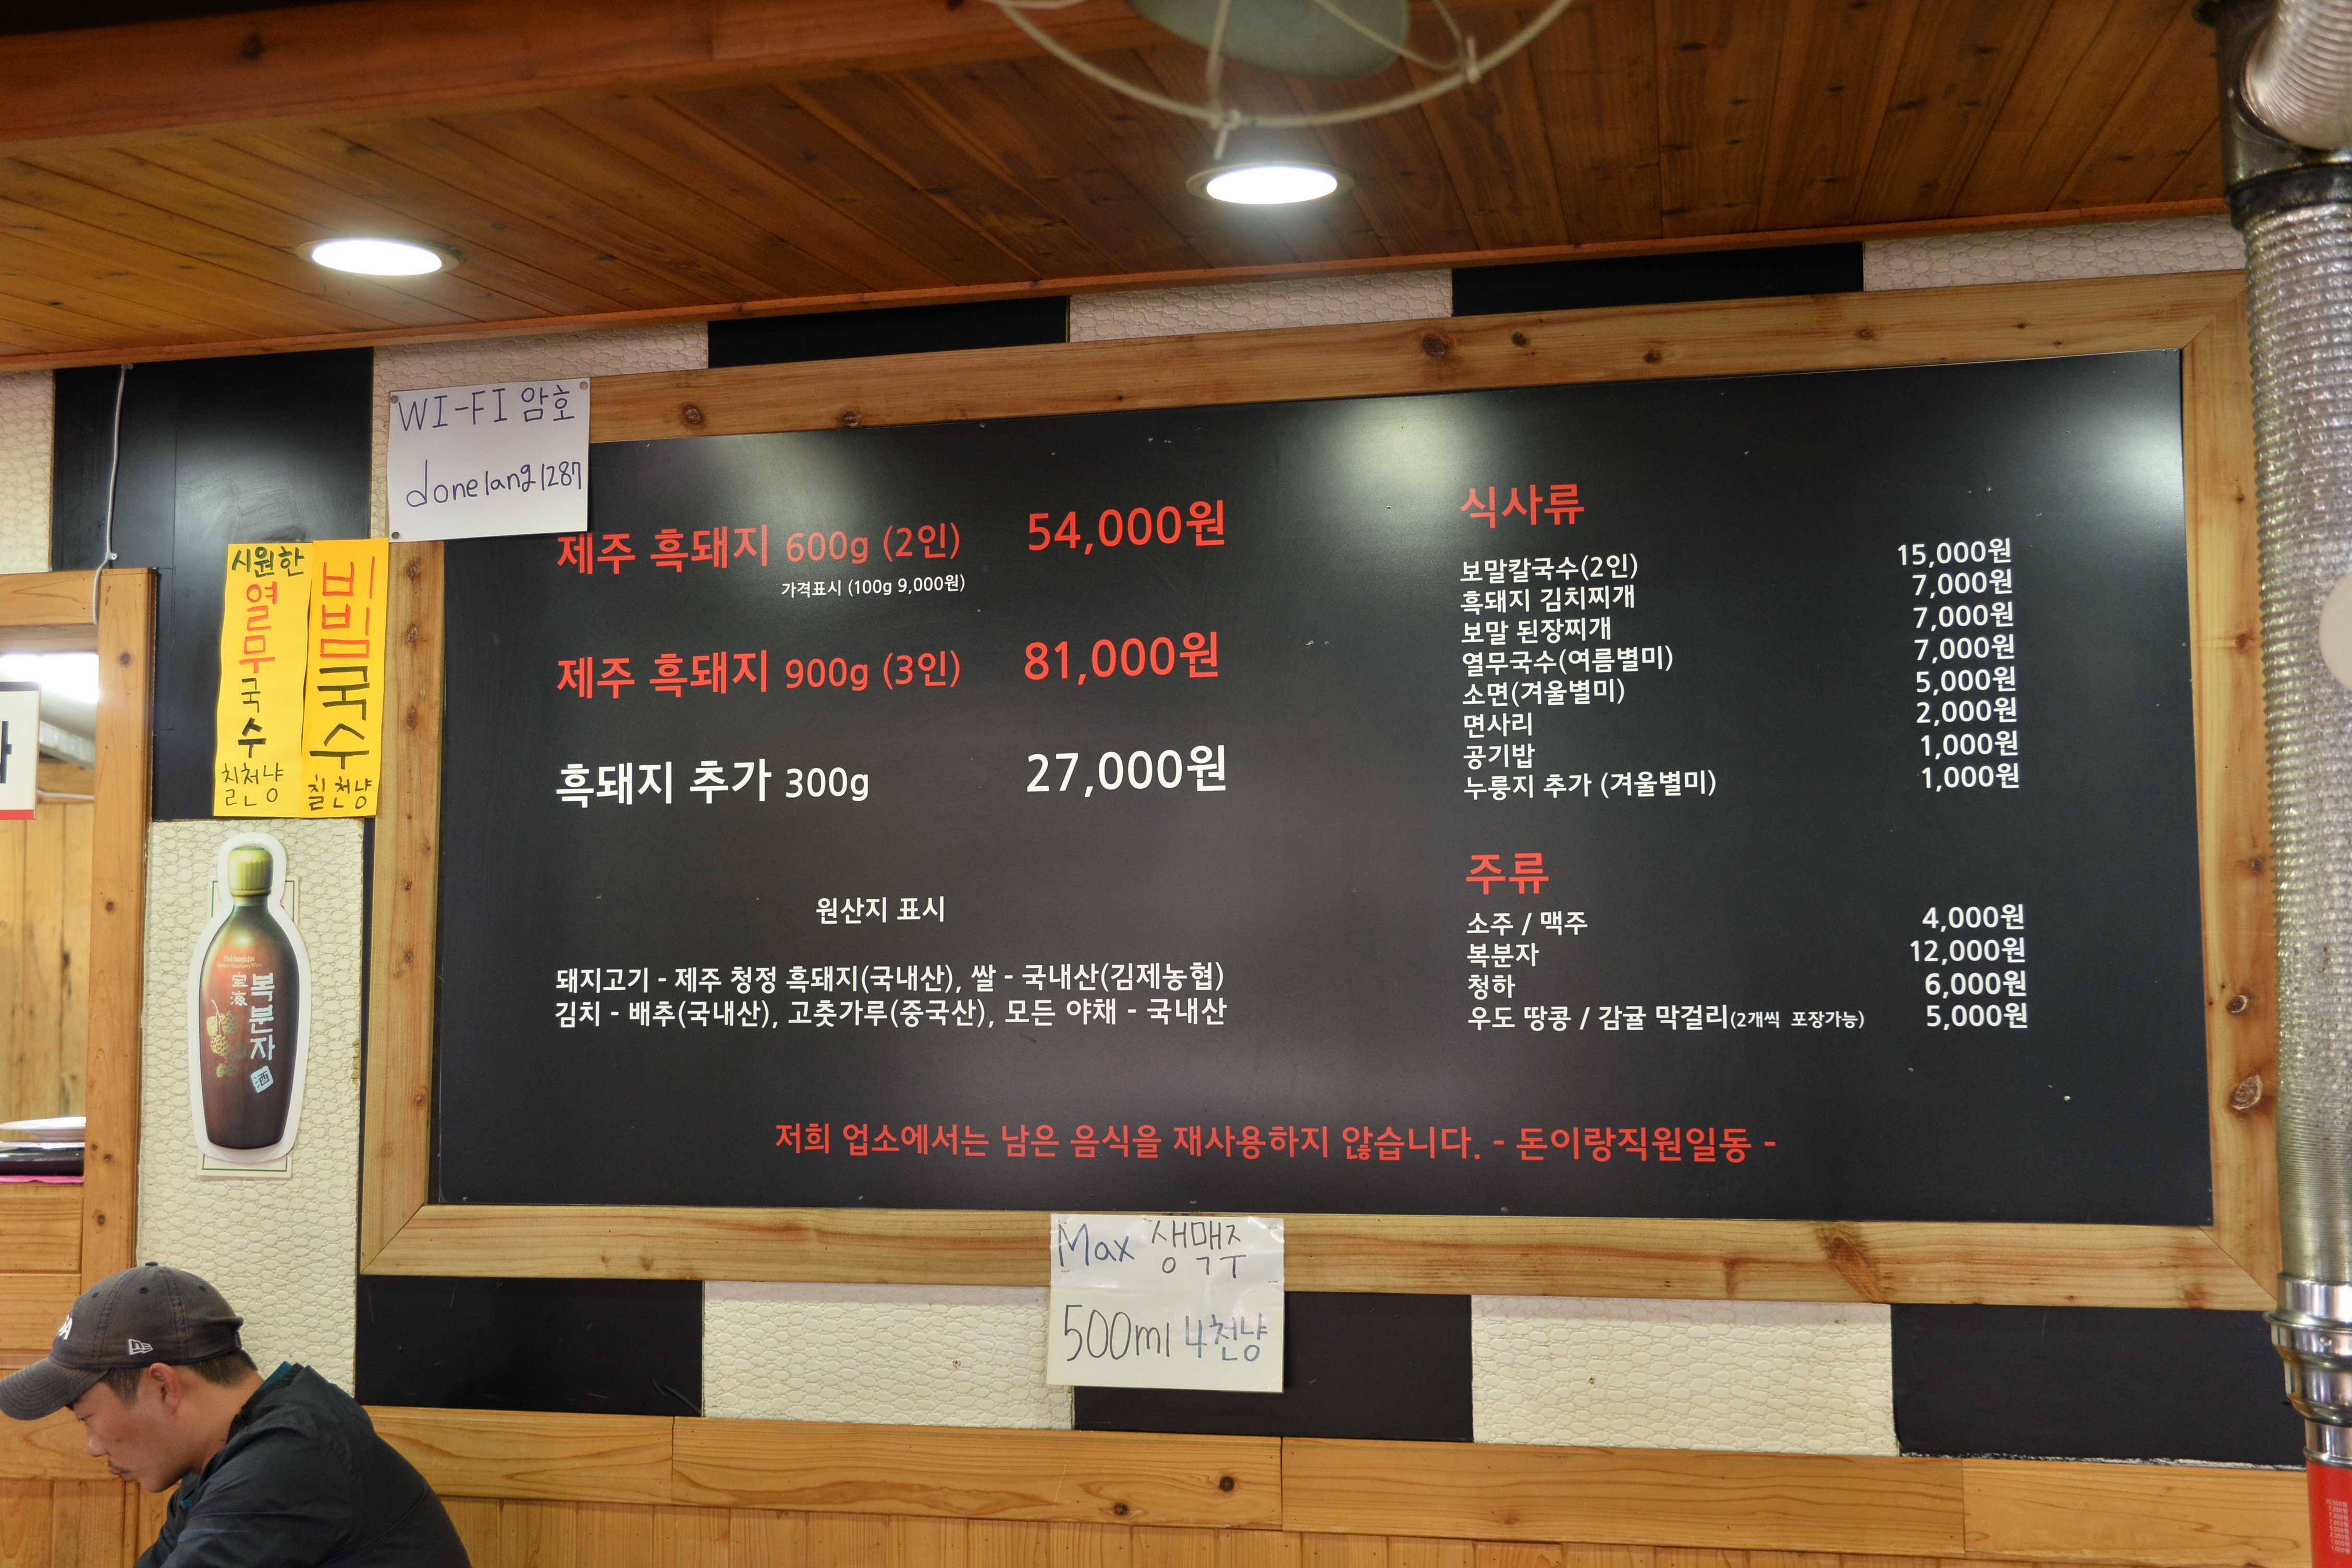 WI-FI 암호
donelang1287
시원한
열무국수
칠천냥
비빔국수
칠천냥
복분자
제주 흑돼지 600g (2인) 54,000원
가격표시 (100g 9,000원)
제주 흑돼지 900g (3인) 81,000원
흑돼지 추가 300g 27,000원
원산지 표시
돼지고기 - 제주 청정 흑돼지(국내산), 쌀 - 국내산(김제농협)
김치 - 배추(국내산), 고춧가루(중국산), 모든 야채 - 국내산
식사류
보말칼국수(2인) 15,000원
흑돼지 김치찌개 7,000원
보말 된장찌개 7,000원
열무국수(여름별미) 7,000원
소면(겨울별미) 5,000원
면사리 2,000원
공기밥 1,000원
누룽지 추가 (겨울별미) 1,000원
주류
소주 / 맥주 4,000원
복분자 12,000원
청하 6,000원
우도 땅콩 / 감귤 막걸리(2개씩 포장가능) 5,000원
저희 업소에서는 남은 음식을 재사용하지 않습니다. - 돈이랑직원일동 -
Max 생맥주
500ml 4천냥